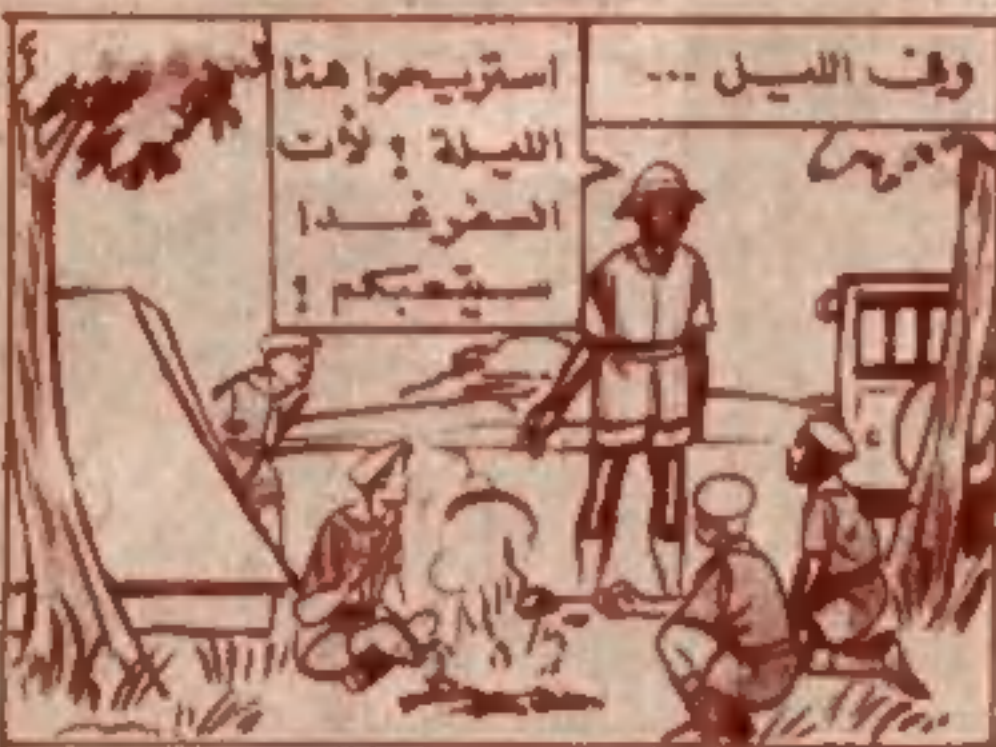 وفى الليل ...
استريحوا هنا
الليلة ؛ لأن
السفر غدا
سيتعبكم !